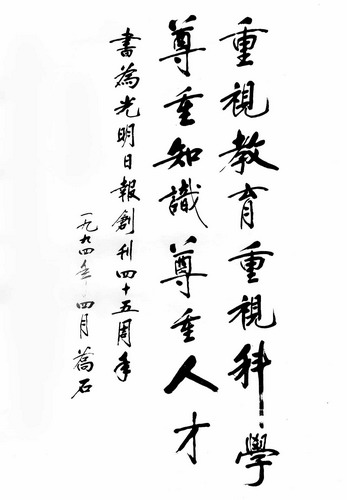 重視教育重視科學
尊重知識尊重人才
書為光明日報創刊四十五周年
一九九四年四月喬石